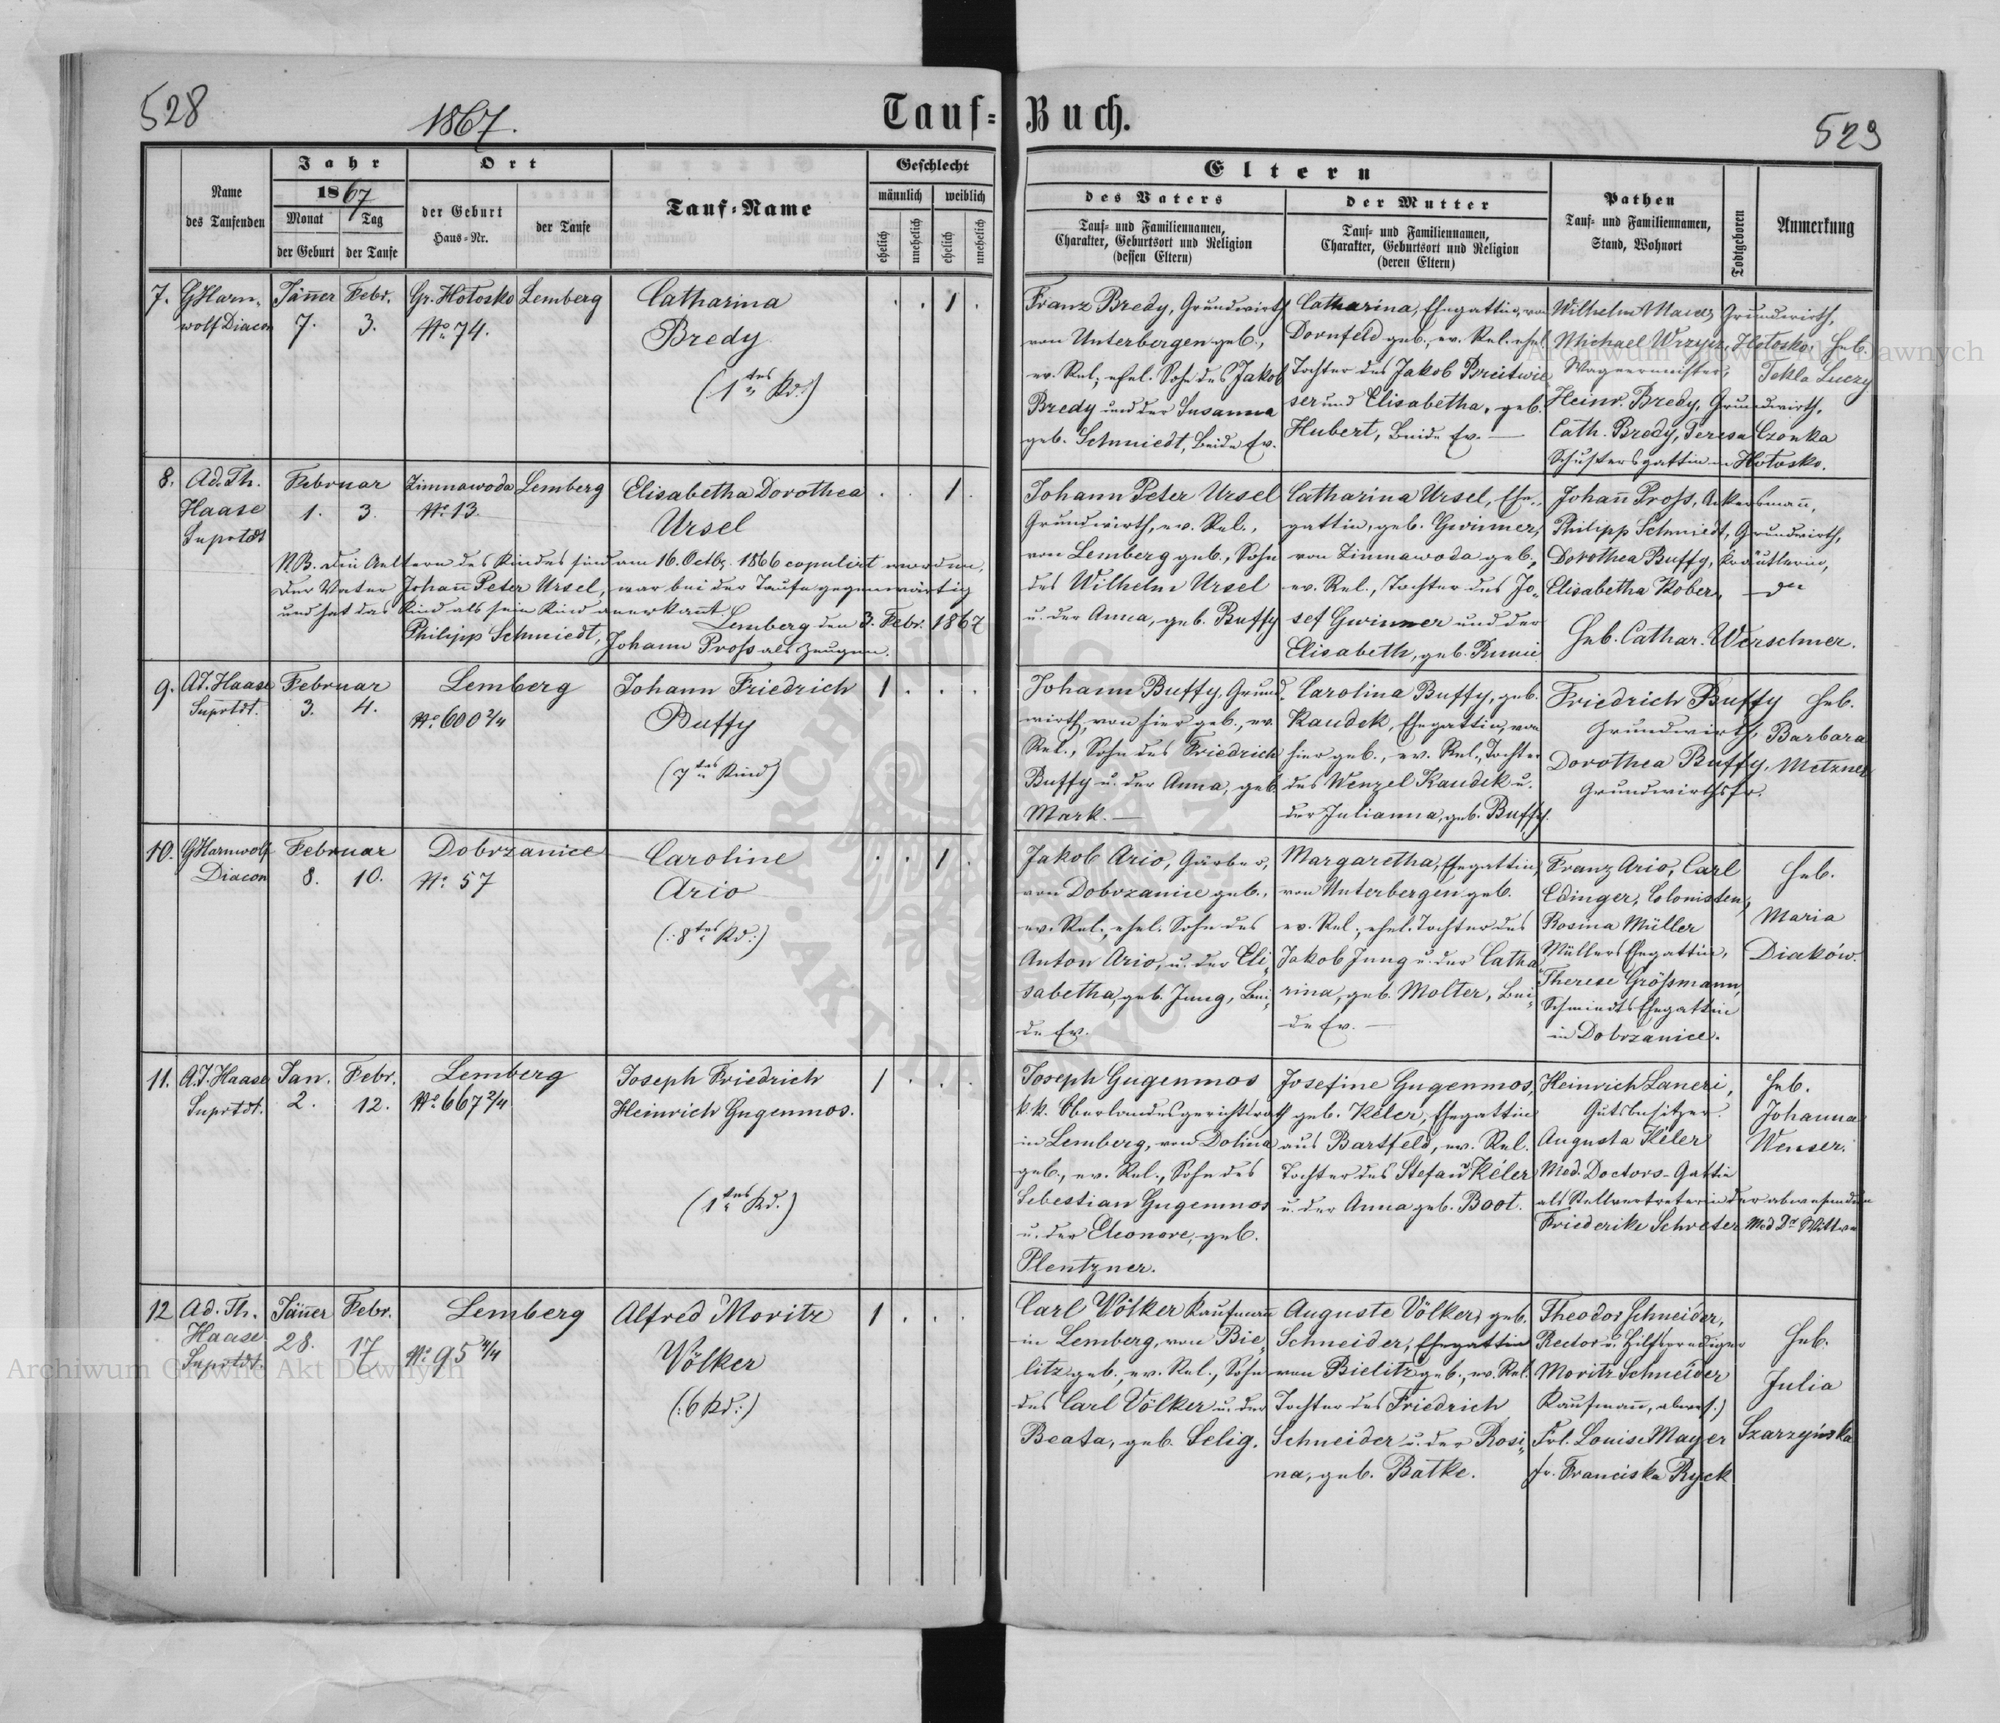 528
1867.
Tauf-Buch.
529
Name des Taufenden
Jahr
1867
Monat
Tag
der Geburt
der Taufe
Ort
der Geburt
Haus-Nr.
der Taufe
Tauf-Name
Geschlecht
männlich
weiblich
ehelich
unehelich
ehelich
unehelich
Eltern
des Vaters
Tauf- und Familiennamen,
Charakter, Geburtsort und Religion
(dessen Eltern)
der Mutter
Tauf- und Familiennamen,
Charakter, Geburtsort und Religion
(deren Eltern)
Pathen
Tauf- und Familiennamen,
Stand, Wohnort
Todtgeboren
Anmerkung
7.
GHarn-
wolf Diacon
Jäner
7.
Febr.
3.
Gr. Hotosko
No 74.
Lemberg
Catharina
Bredy
(1tes Kd.)
1
Franz Bredy, Grundwirth
von Unterbergen geb.,
ev. Rel., ehel. Sohn des Jakob
Bredy und der Susanna
geb. Schmiedt, beide Ev.
Catharina, Ehegattin, von
Dornfeld geb., ev. Rel. ehel.
Tochter des Jakob Breitwie
ser und Elisabetha, geb.
Hubert, beide Ev. —
Wilhelm Grundwirth,
Michael Hotosko. Heb.
Wagnermeister, Tekla Luczy
Heinr. Bredy, Grundwirth,
Cath. Bredy, Teresa Czonka
Schustersgattin in Hotosko.
8.
Ad. Th.
Haase
Suprtdt
Februar
1. 3.
Zimnawoda
No 13.
Lemberg
Elisabetha Dorothea
Ursel
1
N.B. Die Aeltern des Kindes sind am 16. Octb. 1866 copulirt worden,
Der Vater Johann Peter Ursel, war bei der Taufe gegenwärtig
und hat das Kind als sein Kind anerkannt.
Lemberg den 3. Febr. 1867
Philipp Schmiedt, Johann Pross als Zeugen.
Johann Peter Ursel
Grundwirth, ev. Rel.,
von Lemberg geb., Sohn
des Wilhelm Ursel
u. der Anna, geb. Buffy
Catharina Ursel, Ehe-
gattin, geb. Gwinner,
von Zimnawoda geb.,
ev. Rel., Tochter des Jo-
sef Gwinner und der
Elisabeth, geb.
Johann Pross, Ackersmann,
Philipp Schmiedt, Grundwirth,
Dorothea Buffy, Kräutlerin,
Elisabetha Kober, — dto
Heb. Cathar. Werschner.
9.
Ad. Haase
Suprtdt.
Februar
3. 4.
Lemberg
No 600 2/4
Johann Friedrich
Buffy
(7tes Kind)
1
Johann Buffy, Grund-
wirth, von hier geb., ev.
Rel., Sohn des Friedrich
Buffy u. der Anna, geb.
Mark. —
Carolina Buffy, geb.
Kaudek, Ehegattin, von
hier geb., ev. Rel., Tochter
des Wenzel Kaudek u.
der Julianna, geb. Buffy.
Friedrich Buffy
Grundwirth,
Dorothea Buffy,
Grundwirthsfr.
Heb.
Barbara
Metzner
10.
GHarnwolf
Diacon
Februar
8. 10.
Dobrzanice
No 57
Caroline
Ario
(:8tes Kd:)
1
Jakob Ario, Gärber,
von Dobrzanice geb.,
ev. Rel., ehel. Sohn des
Anton Ario, u. der Eli-
sabetha, geb. Jung, bei-
de Ev.
Margaretha, Ehegattin,
von Unterbergen geb.
ev. Rel., ehel. Tochter des
Jakob Jung u. der Catha
rina, geb. Molter, bei-
de Ev. —
Franz Ario, Carl
Edinger, Colonisten,
Rosina Müller
Müllers Ehegattin,
Therese Grössmann,
Schmiedts Ehegattin
in Dobrzanice.
Heb.
Maria
Diaków.
11.
A.T. Haase
Suprtdt.
Jan.
2.
Febr.
12.
Lemberg
No 667 2/4
Joseph Friedrich
Heinrich Gugenmos.
(1tes Kd.)
1
Joseph Gugenmos
k.k. Oberlandesgerichtsrath
in Lemberg, von Dolina
geb., ev. Rel., Sohn des
Sebestian Gugenmos
u. der Eleonore, geb.
Plentzner.
Josefine Gugenmos,
geb. Kéler, Ehegattin
aus Bartfeld, ev. Rel.
Tochter des Stefan Kéler
u. der Anna geb. Boot.
Heinrich Laneri,
Gutsbesitzer.
Augusta Kéler
Med. Doctors-Gattin
als Stellvertreterin der abwesenden
Friederike Schreter Med Drs Wittwe
Heb.
Johanna
Wenser.
12
Ad. Th.
Haase
Suprtdt.
Jäner
28.
Febr.
17
Lemberg
No 95 4/4
Alfred Moritz
Völker
(:6 Kd:)
1
Carl Völker Kaufmann
in Lemberg, von Bie-
litz geb., ev. Rel., Sohn
des Carl Völker u. der
Beata, geb. Selig.
Auguste Völker, geb.
Schneider, Ehegattin
von Bielitz geb., ev. Rel.
Tochter des Friedrich
Schneider u. der Rosi-
na, geb. Batke.
Theodor Schneider,
Rector u. Hilfsprediger
Moritz Schneider
Kaufmann, abwes.)
Frl. Louise Mayer
Fr. Franciska Ryck
Heb.
Julia
Szarzyńska
Archiwum Główne Akt Dawnych
Archiwum Główne Akt Dawnych